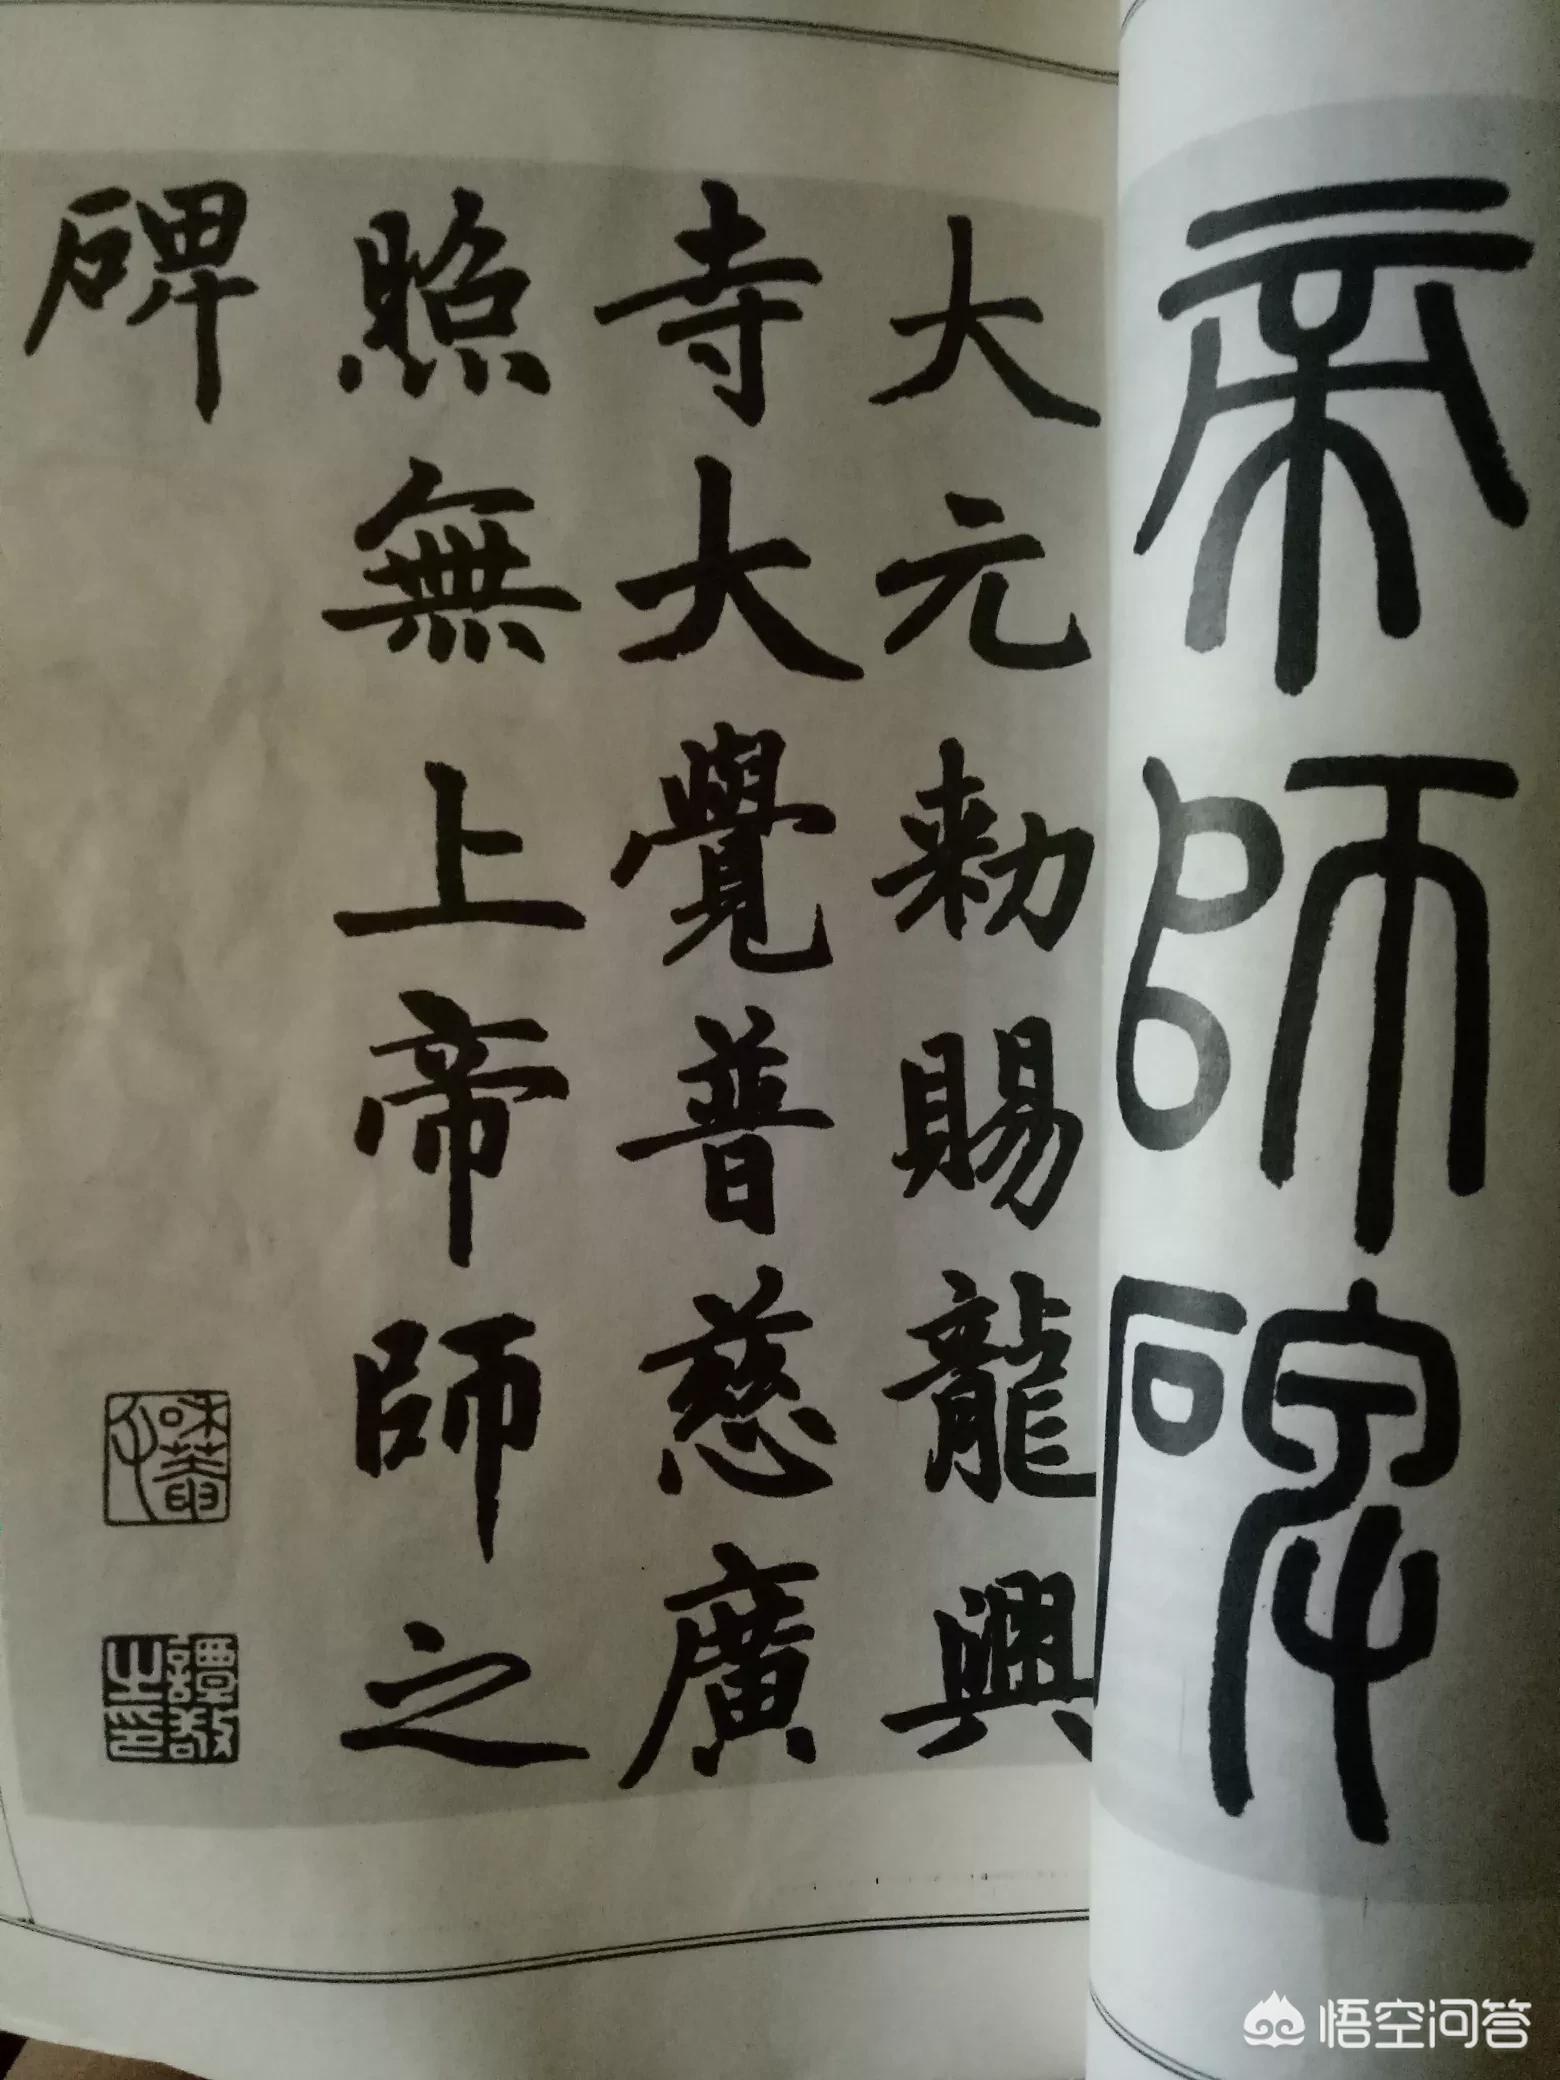 帝師碑
大元勑賜龍興
寺大覺普慈廣
照無上帝師之
碑
悟空问答